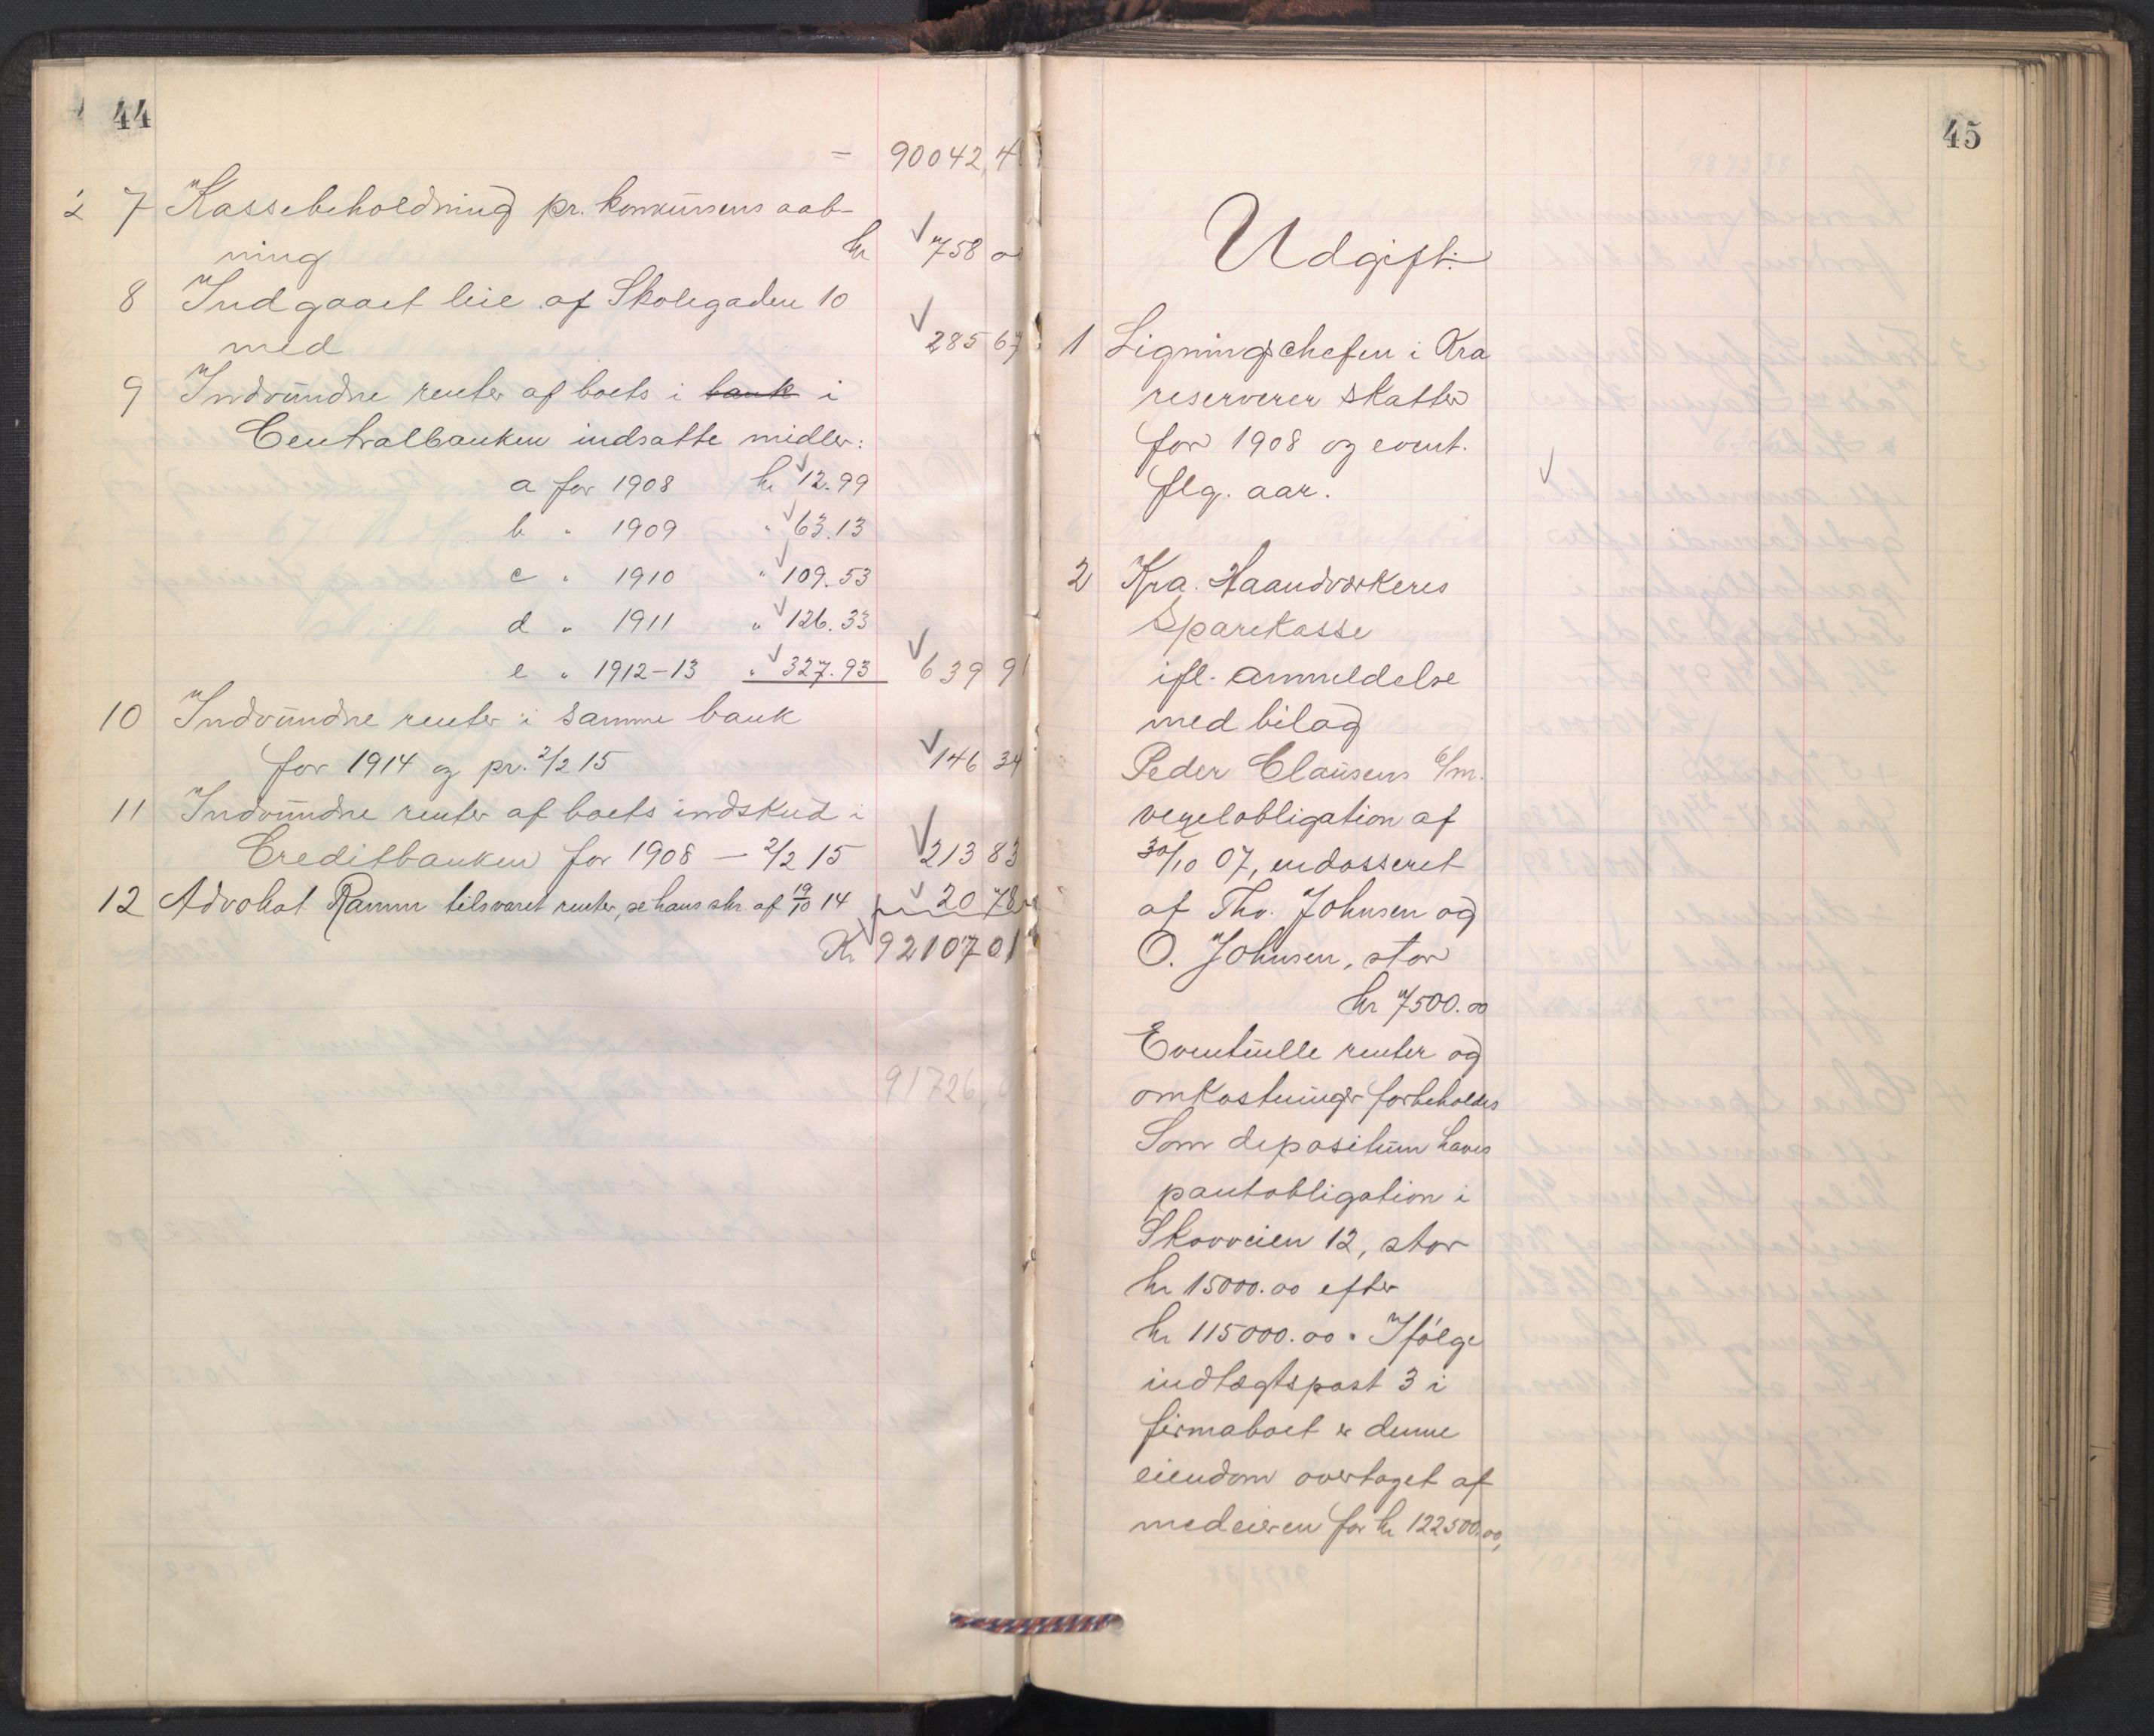 44
= 90042,4
2 7 Kassebeholdning pr. konkursens aab-
ning kr 758 00
8 Indgaaet leie af Skolegaden 10
med 285 67
9 Indvundne renter af boets i bank i
Centralbanken indsatte midler:
a for 1908 kr 12.99
b " 1909 " 63.13
c " 1910 " 109.53
d " 1911 " 126.33
e " 1912-13 " 327.93 639 91
10 Indvundne renter i samme bank
for 1914 og pr. 2/2 15 146 34
11 Indvundne renter af boets indskud i
Creditbanken for 1908 – 2/2 15 213 83
12 Advokat Ramm tilsvaret renter, se hans skr. af 19/10 14 20 78
Kr 92107 01
91726,0
45
Udgift:
1 Ligningschefen i Kra
reserverer skatter
for 1908 og event.
flg. aar.
2 Kra. Haandværkeres
Sparekasse
ifl. anmeldelse
med bilag
Peder Clausens c/m.
vexelobligation af
30/10 07, endosseret
af Thv. Johnsen og
O. Johnsen, stor
kr 7500.00
Eventuelle renter og
omkostninger forbeholdes
Som depositum haves
pantobligation i
Skovveien 12, stor
kr 15000.00 efter
kr 115000.00. Ifølge
indtægtspost 3 i
firmaboet er denne
eiendom overtaget af
medeieren for kr 122500.00,